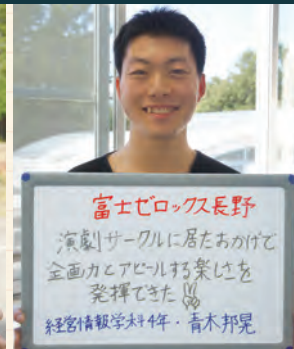 富士ゼロックス長野
演劇サークルに居たおかげで
企画力とアピールする楽しさを
発揮できた
経営情報学科4年・青木邦晃